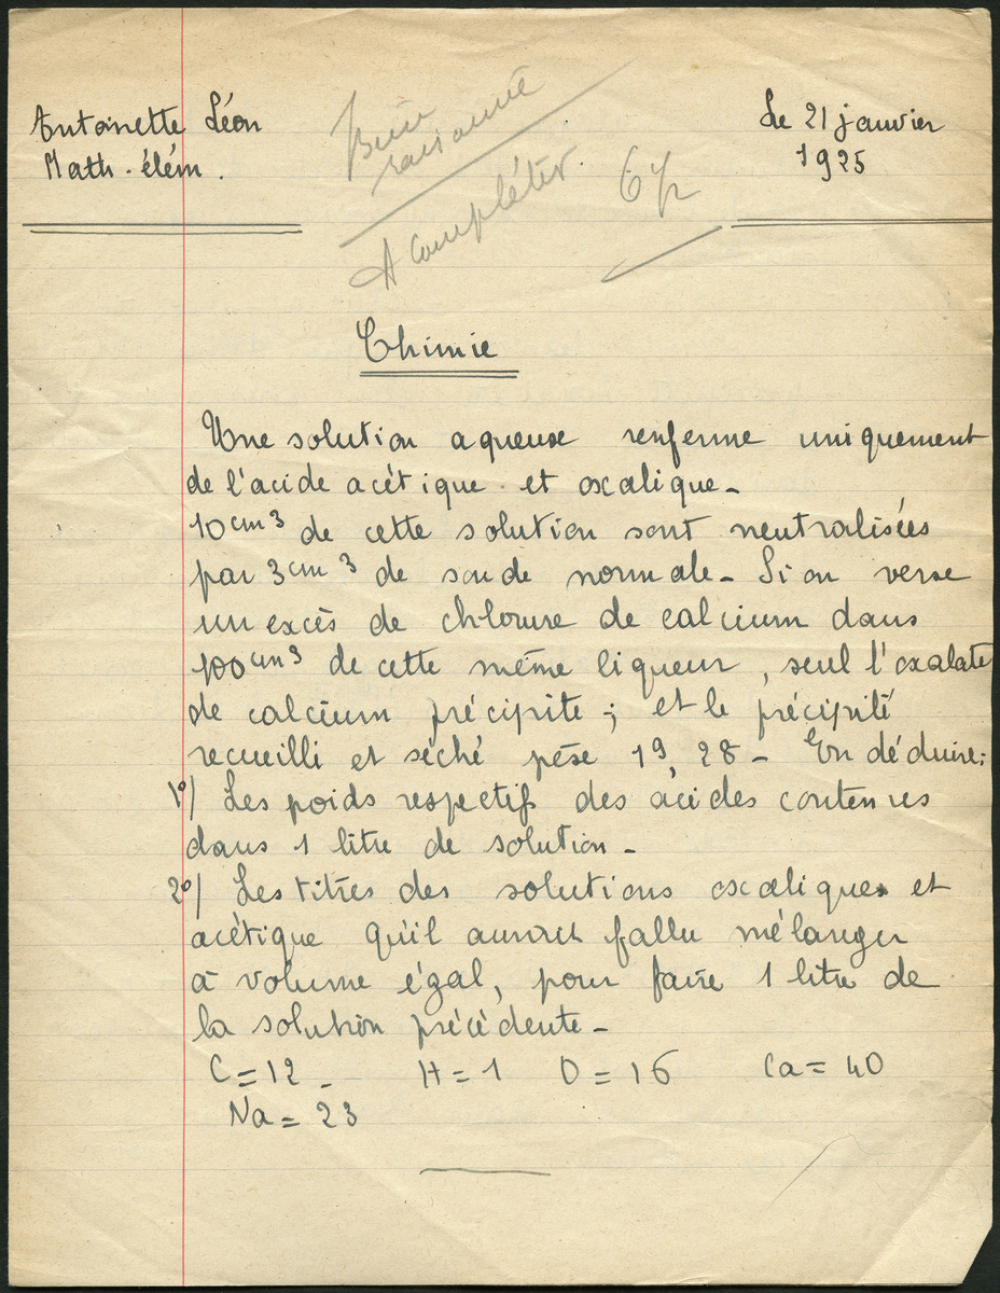 Antoinette Léon
Math. élém.
Bien
raisonné
A compléter.
6 1/2
Le 21 janvier
1925
Chimie
Une solution aqueuse renferme uniquement
de l'acide acétique et oxalique_
10 cm3 de cette solution sont neutralisées
par 3 cm3 de soude normale_ Si on verse
un excès de chlorure de calcium dans
100 cm3 de cette même liqueur, seul l'oxalate
de calcium précipite ; et le précipité
recueilli et séché pèse 1g,28_ En déduire:
1º) Les poids respectifs des acides contenus
dans 1 litre de solution_
2º) Les titres des solutions oxaliques et
acétique qu'il aurait fallu mélanger
à volume égal, pour faire 1 litre de
la solution précédente_
C=12_ H=1 O=16 Ca=40
Na=23